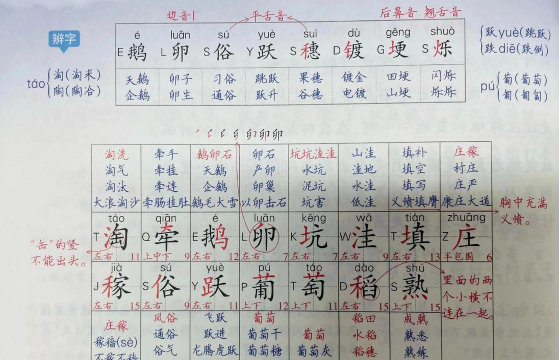 边音! 平舌音 后鼻音 翘舌音
辨字
é luǎn sú yuè suì dù gěng shuò
E鹅 L卵 S俗 Y跃 S穗 D镀 G埂 S烁
天鹅 卵子 习俗 跳跃 果穗 镀金 田埂 闪烁
企鹅 卵生 通俗 跃升 谷穗 电镀 山埂 烁烁
táo 淘(淘米)
陶(陶冶)
跃yuè(跳跃)
跌diē(跌倒)
pú 葡(葡萄)
匍(匍匐)
淘洗 牵手 鹅卵石 卵石 坑坑洼洼 山洼 填补 庄稼
淘气 牵挂 天鹅 产卵 炉坑 洼地 填空 村庄
淘汰 牵连 企鹅 卵巢 泥坑 水洼 填写 庄严
大浪淘沙 牵肠挂肚 鹅毛大雪 以卵击石 坑害 低洼 义愤填膺 康庄大道
táo qiān é luǎn kēng wā tián zhuāng
T淘 Q牵 E鹅 L卵 K坑 W洼 T填 Z庄
左右 11 上中下 9 左右 12 左右 7 左右 7 左右 9 左右 13 半包围 6
胸中充满
义愤。
"缶"的竖
不能出头。
jià sú yuè pú táo dào shú
J稼 S俗 Y跃 P葡 T萄 D稻 S熟
左右 15 左右 9 左右 11 上下 12 上下 11 左右 15 上下 15
里面的两
个小横不
连在一起。
庄稼 风俗 飞跃 葡萄 葡萄 稻田 成熟
稼穑(sè) 通俗 跃进 葡萄干 葡萄 水稻 熟悉
不稼不穑 俗气 龙腾虎跃 葡萄糖 葡萄灰 稻穗 熟练